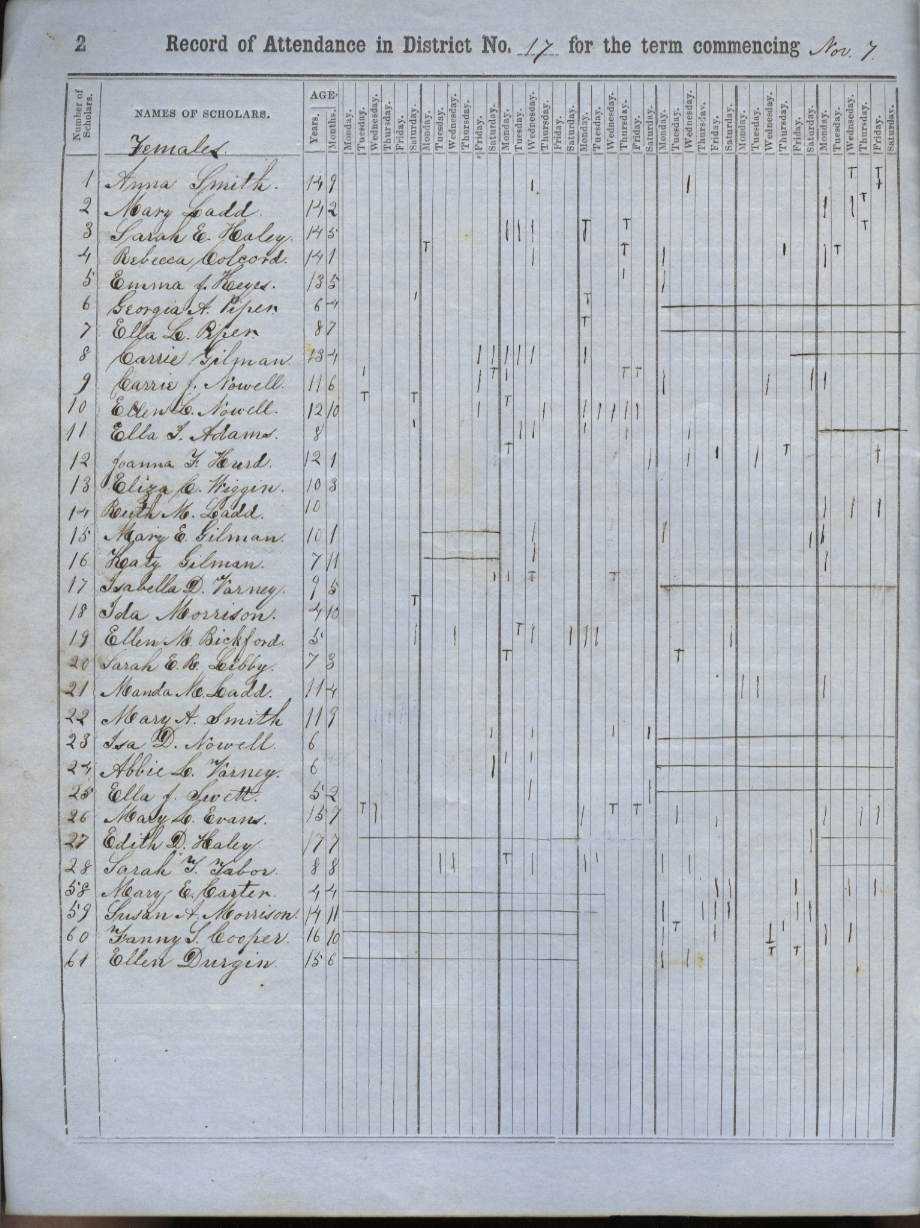 2 Record of Attendance in District No. 17 for the term commencing Nov. 7.
Number of Scholars. NAMES OF SCHOLARS. AGE.
Years, Months. Monday. Tuesday. Wednesday. Thursday. Friday. Saturday. Monday. Tuesday. Wednesday. Thursday. Friday. Saturday. Monday. Tuesday. Wednesday. Thursday. Friday. Saturday. Monday. Tuesday. Wednesday. Thursday. Friday. Saturday. Monday. Tuesday. Wednesday. Thursday. Friday. Saturday. Monday. Tuesday. Wednesday. Thursday. Friday. Saturday. Monday. Tuesday. Wednesday. Thursday. Friday. Saturday.
Females
1 Anna Smith. 14 9
2 Mary Ladd. 14 2
3 Sarah E. Haley. 14 5
4 Rebecca Colcord. 14 1
5 Emma J. Keyes. 13 5
6 Georgia A. Piper 6 4
7 Ella L. Piper. 8 7
8 Carrie Gilman. 13 4
9 Carrie J. Nowell. 11 6
10 Ellen L. Nowell. 12 10
11 Ella I. Adams. 8
12 Joanna F. Hurd. 12 1
13 Eliza C. Wiggin. 10 3
14 Ruth M. Ladd. 10
15 Mary E. Gilman. 10 1
16 Katy Gilman. 7 11
17 Isabella D. Varney. 9 5
18 Ida Morrison. 4 10
19 Ellen M. Bickford. 5
20 Sarah E. R. Libby. 7 3
21 Manda M. Ladd. 11 4
22 Mary A. Smith 11 9
23 Isa D. Nowell. 6
24 Abbie L. Varney. 6
25 Ella J. Swett. 5 2
26 Mary L. Evans. 15 7
27 Edith D. Haley 17 7
28 Sarah F. Tabor. 8 8
58 Mary E. Carter 4 4
59 Susan A. Morrison. 14 11
60 Fanny S. Cooper. 16 10
61 Ellen Durgin. 15 6